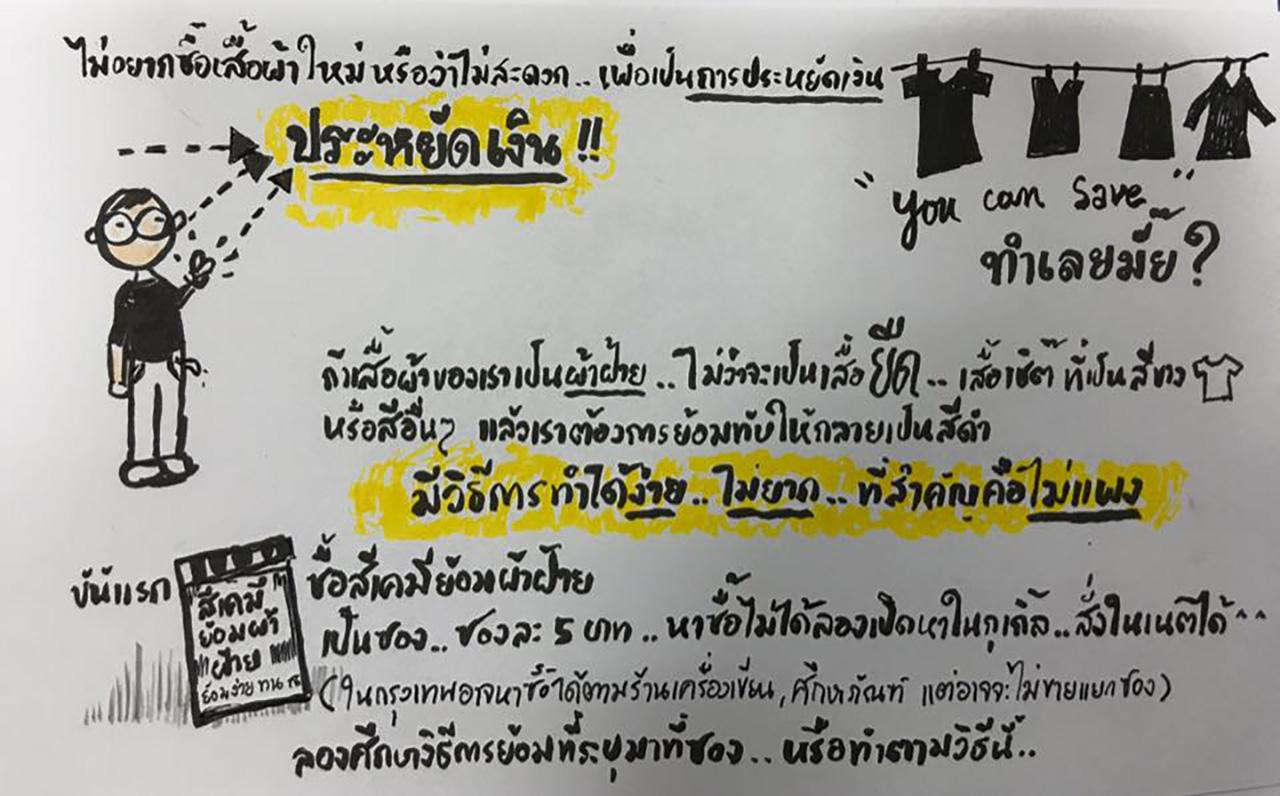 ไม่อยากซื้อเสื้อผ้าใหม่ หรือว่าไม่สะดวก.. เพื่อเป็นการประหยัดเงิน
ประหยัดเงิน !!
"you can save"
ทำเลยมั๊ย ?
ถ้าเสื้อผ้าของเราเป็นผ้าฝ้าย.. ไม่ว่าจะเป็นเสื้อยืด.. เสื้อเชิ๊ต ที่เป็นสีขาว
หรือสีอื่นๆ แล้วเราต้องการย้อมทับให้กลายเป็นสีดำ
มีวิธีการทำได้ง่าย.. ไม่ยาก.. ที่สำคัญคือไม่แพง
ขั้นแรก
สีเคมี
ย้อมผ้า
ฝ้าย
ย้อมง่าย ทน
ซื้อสีเคมีย้อมผ้าฝ้าย
เป็นซอง.. ซองละ 5 บาท.. หาซื้อไม่ได้ลองเปิดหาในกูเกิ้ล.. สั่งในเนตได้ ^^
(ในกรุงเทพอาจหาซื้อได้ตามร้านเครื่องเขียน, ศึกษาภัณฑ์ แต่อาจจะไม่ขายแยกซอง)
ลองศึกษาวิธีการย้อมที่ระบุมาที่ซอง.. หรือทำตามวิธีนี้..